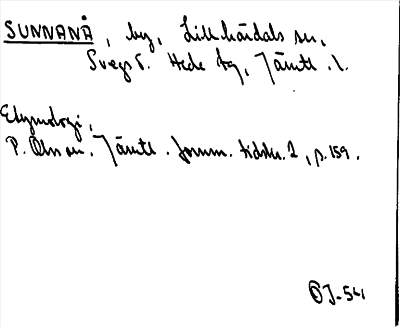 SUNNANÅ, by, Lillhärdals sn,
Svegs t. Hede tg, Jämtl. l.
Etymologi,
P. Olsson. Jämtl. fornm. tidskr. 2, p. 159.
J-541